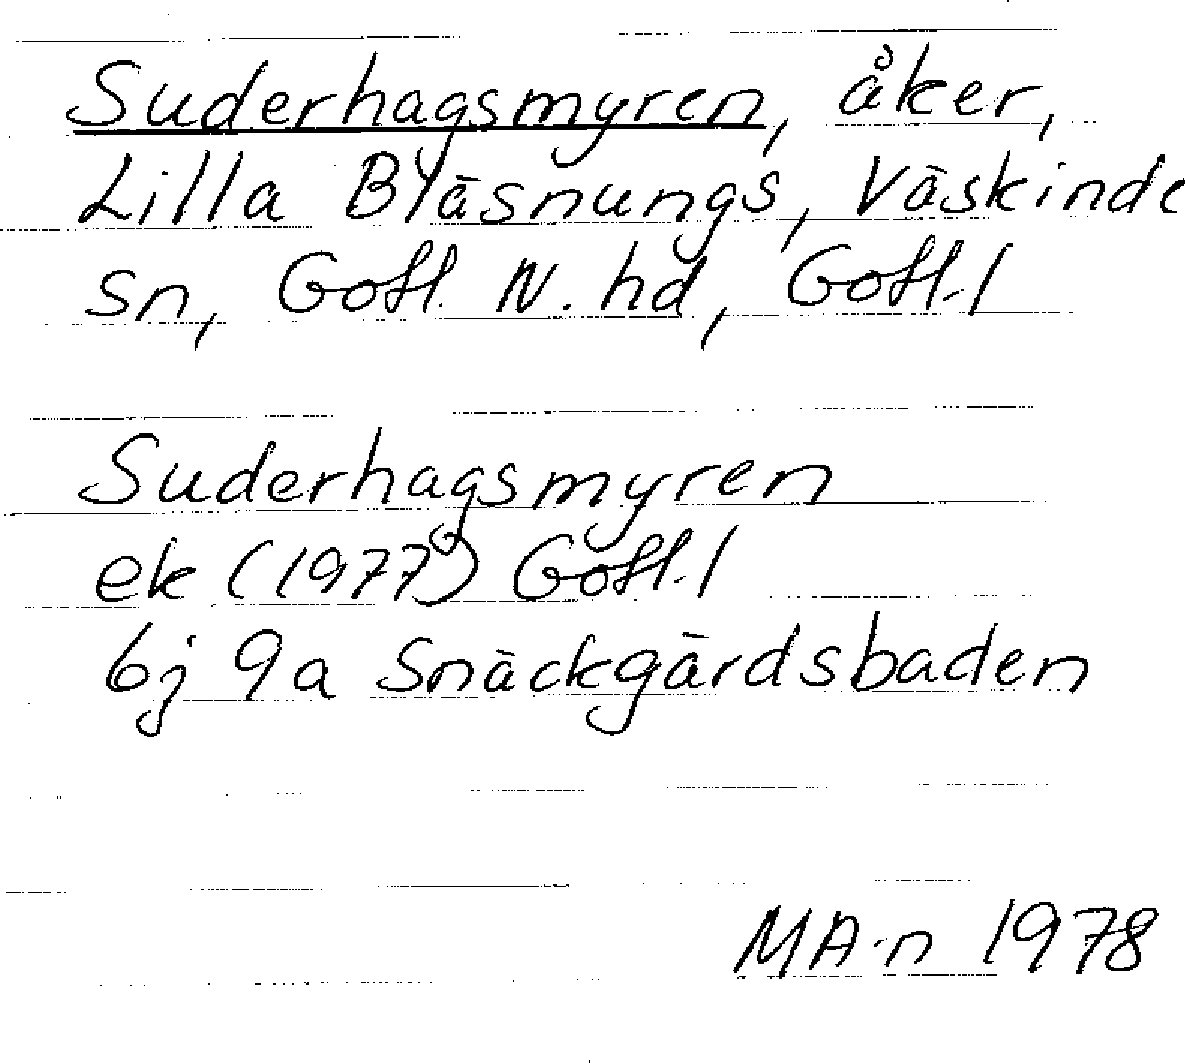 Suderhagsmyren, åker,
Lilla Bläsnungs, Väskinde
sn, Gotl. N. hd, Gotl. l
Suderhagsmyren
ek (1977) Gotl. l
6j 9a Snäckgärdsbaden
MA-n 1978